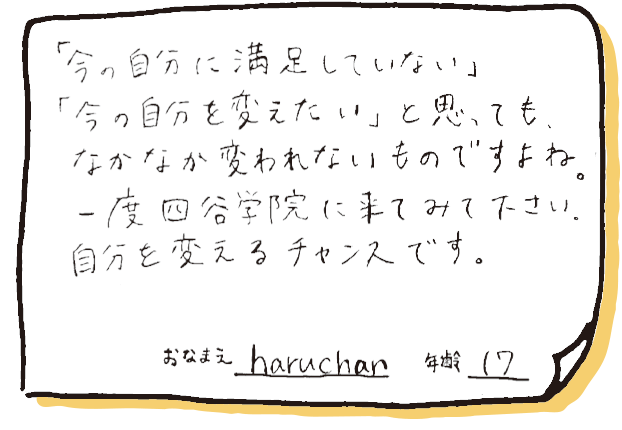 「今の自分に満足していない」
「今の自分を変えたい」と思っても、
なかなか変われないものですよね。
一度四谷学院に来てみて下さい。
自分を変えるチャンスです。
おなまえ haruchan 年齢 17